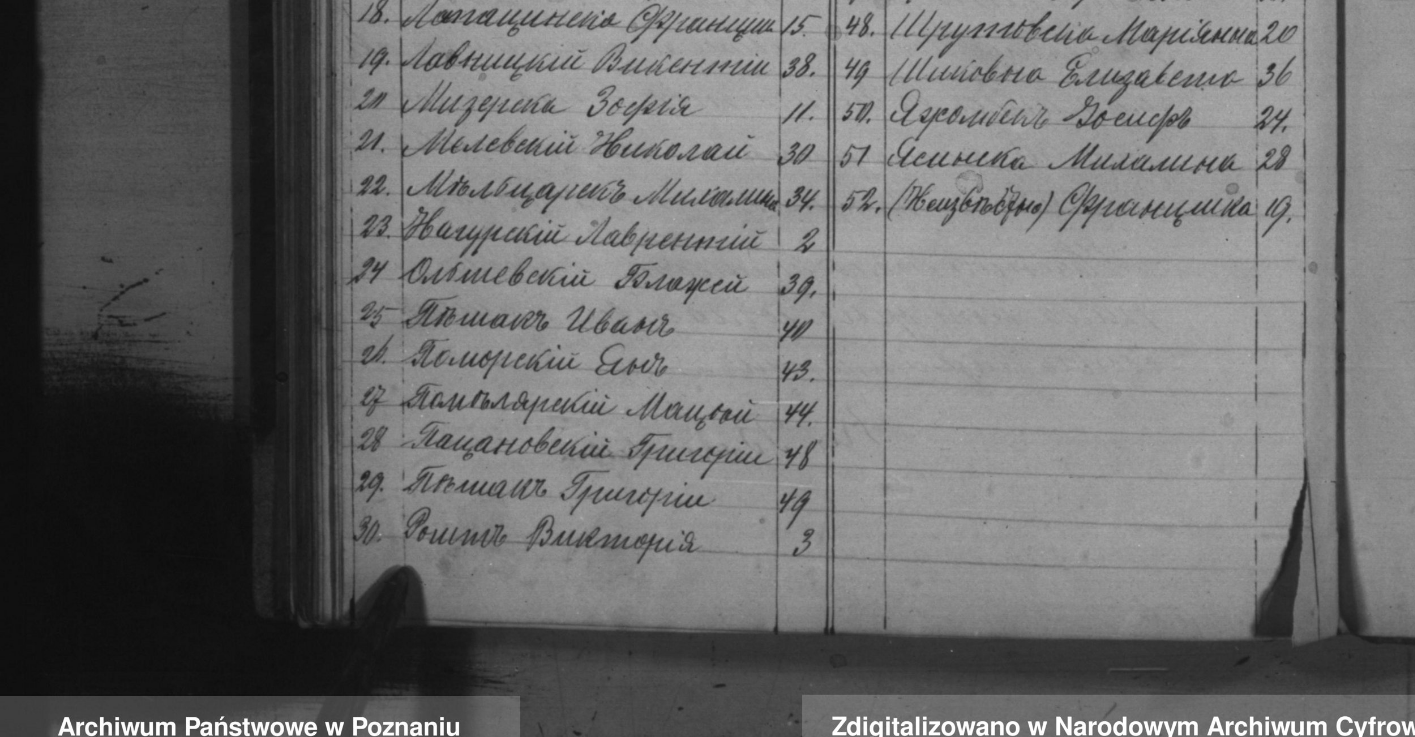 18. Лапацинска Францишк 15.
19. Лавницкій Викентій 38.
20 Мизерска Зофія 11.
21. Мелевскій Николай 30
22. Михалина 34.
23. Нагурскій Лаврентій 2
24 Ольшевскій Блажей 39.
25 Пѣшакъ Иванъ 40
26. Поморскій 43.
27 Мацѣй 44.
28 Пацановскій Григорій 48
29. Пѣшакъ Григорій 49
30. Виктория 3
48. Маріянна 20
49 Елизавета 36
50. Іосифъ 24.
51 Ясинска Михалина 28
52. (Неизвѣстно) Францишка 19.
Archiwum Państwowe w Poznaniu
Zdigitalizowano w Narodowym Archiwum Cyfrow